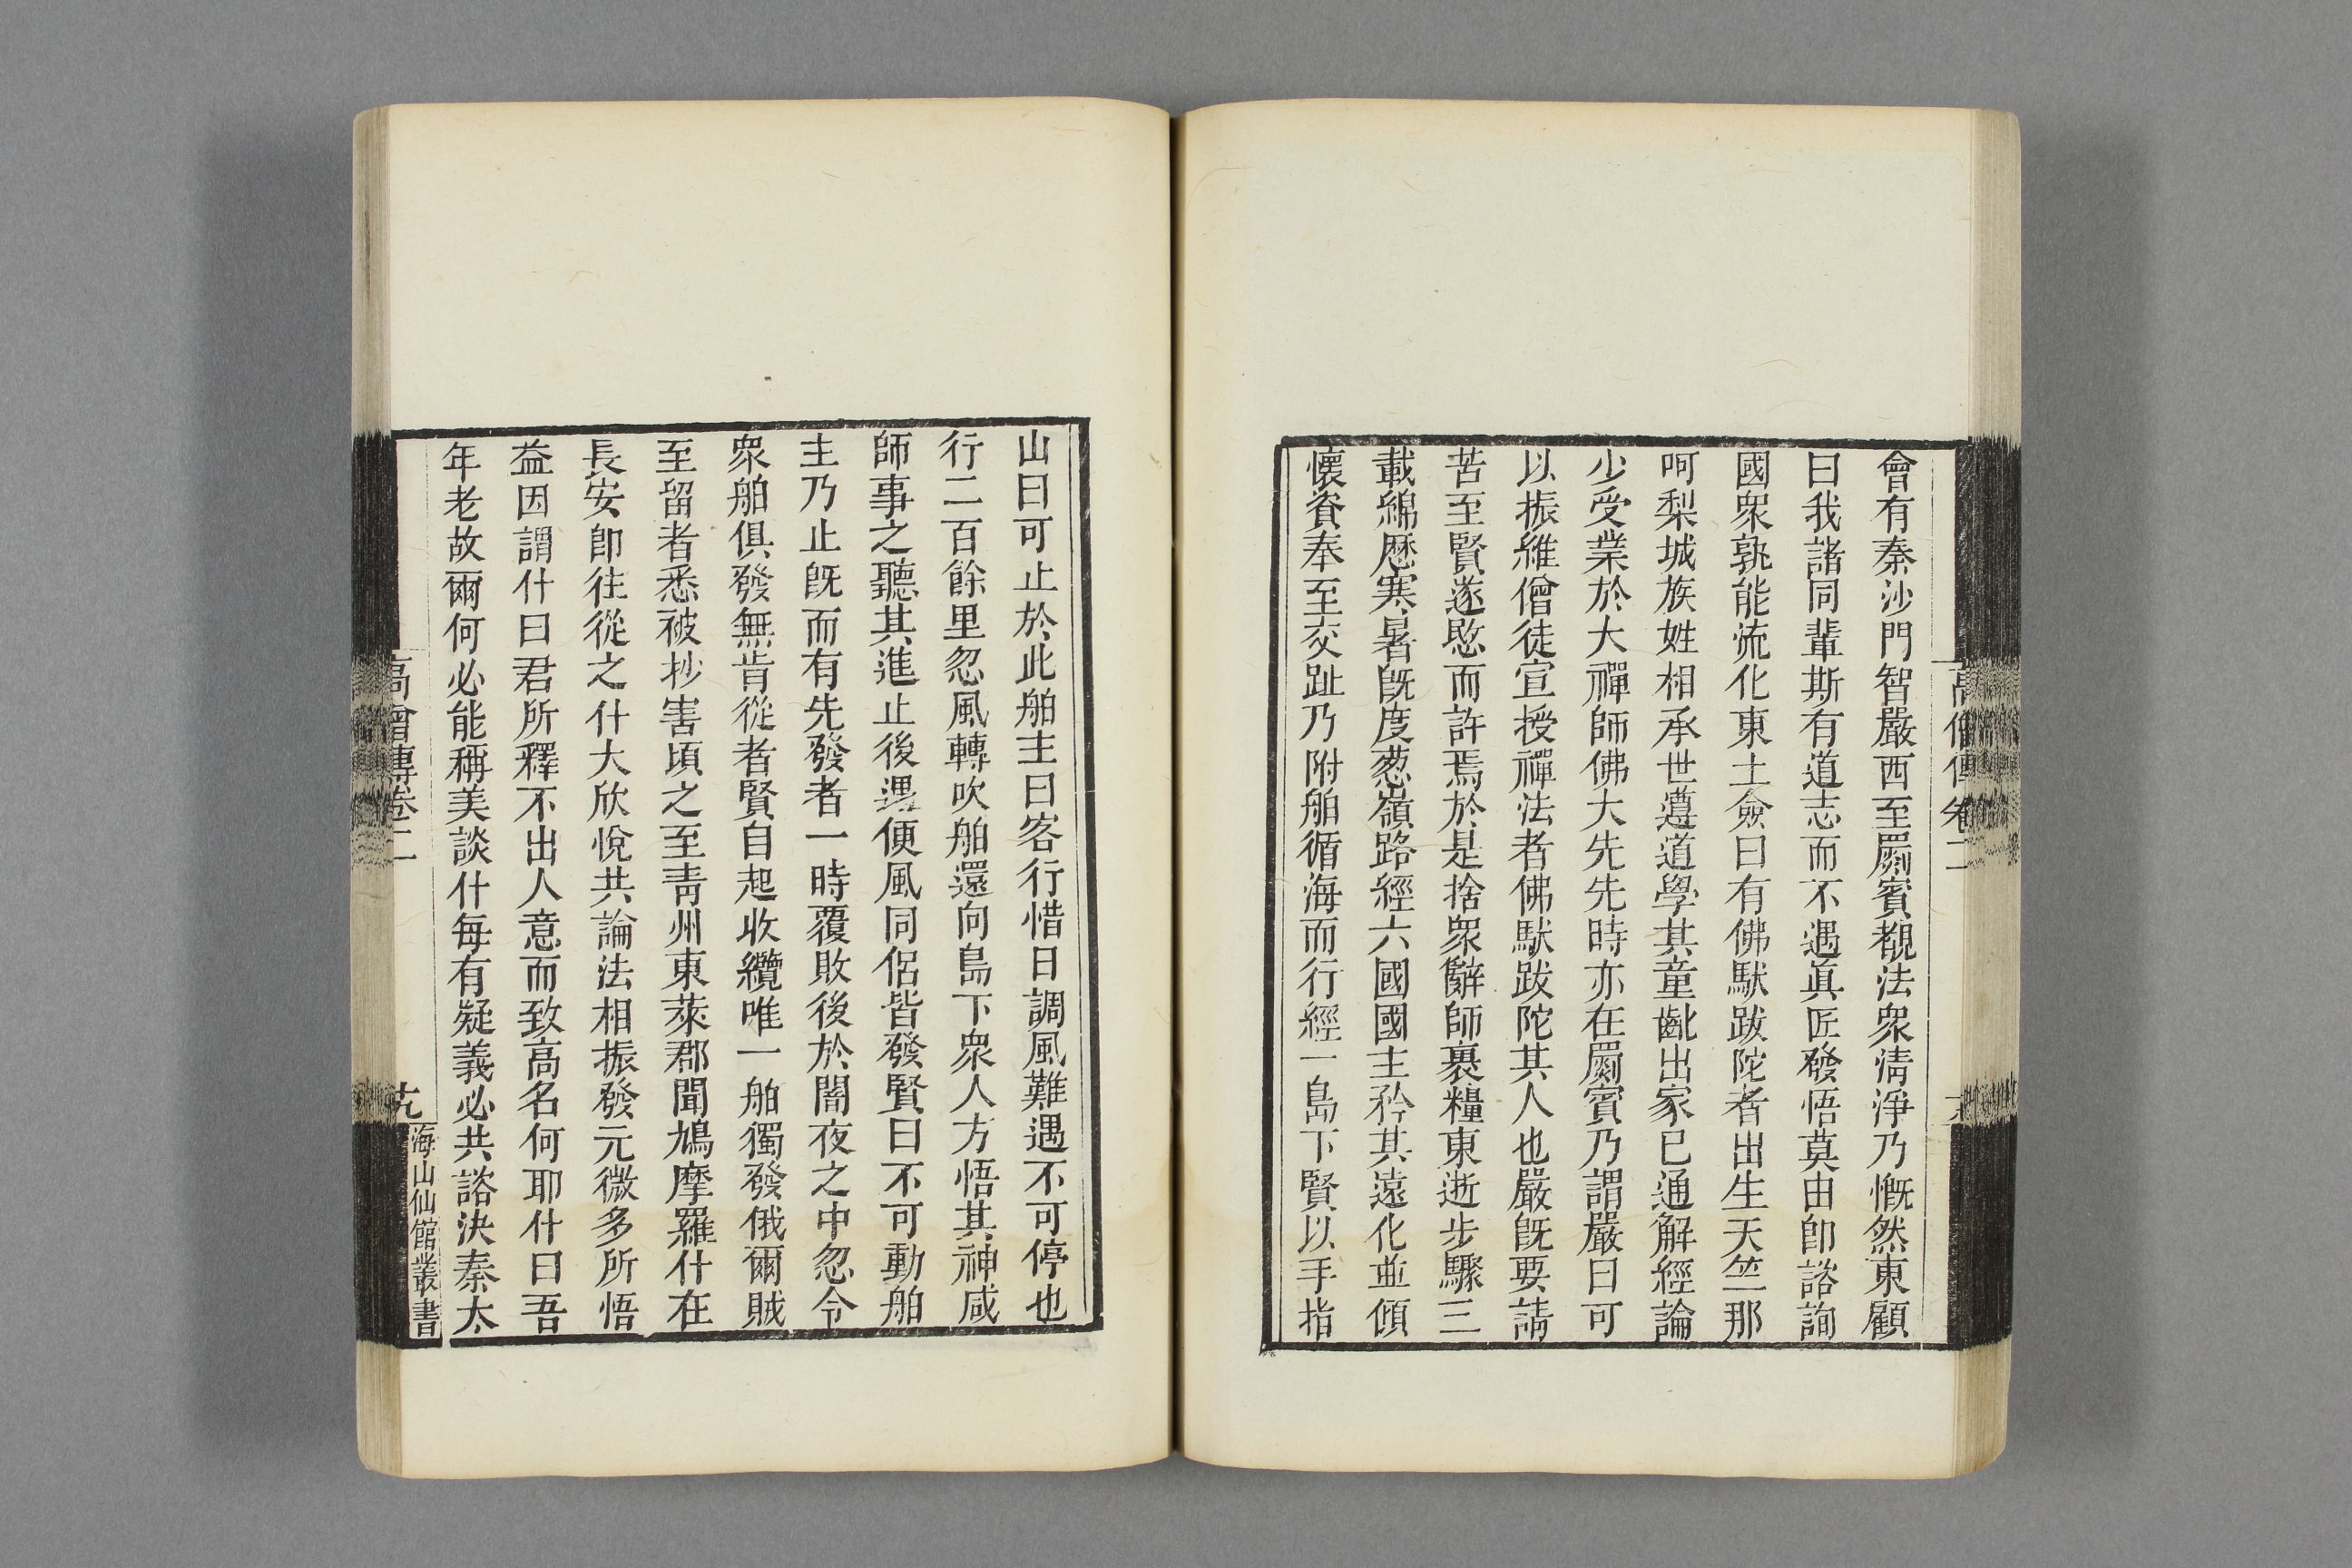 高僧傳卷二
會有秦沙門智嚴西至罽賓覩法衆清淨乃慨然東顧
曰我諸同輩斯有道志而不遇眞匠發悟莫由卽諮詢
國衆孰能流化東土僉曰有佛馱跋陀者出生天竺那
呵梨城族姓相承世遵道學其童齔出家已通解經論
少受業於大禪師佛大先先時亦在罽賓乃謂嚴曰可
以振維僧徒宣授禪法者佛馱跋陀其人也嚴旣要請
苦至賢遂愍而許焉於是捨衆辭師裹糧東逝步驟三
載綿歷寒暑旣度葱嶺路經六國國主矜其遠化並傾
懷資奉至交趾乃附舶循海而行經一島下賢以手指
山曰可止於此舶主曰客行惜日調風難遇不可停也
行二百餘里忽風轉吹舶還向島下衆人方悟其神咸
師事之聽其進止後遇便風同侶皆發賢曰不可動舶
主乃止旣而有先發者一時覆敗後於闇夜之中忽令
衆舶俱發無肯從者賢自起收纜唯一舶獨發俄爾賊
至留者悉被抄害頃之至靑州東萊郡聞鳩摩羅什在
長安卽往從之什大欣悅共論法相振發元微多所悟
益因謂什曰君所釋不出人意而致高名何耶什曰吾
年老故爾何必能稱美談什每有疑義必共諮決秦太
高僧傳卷二
海山仙館叢書